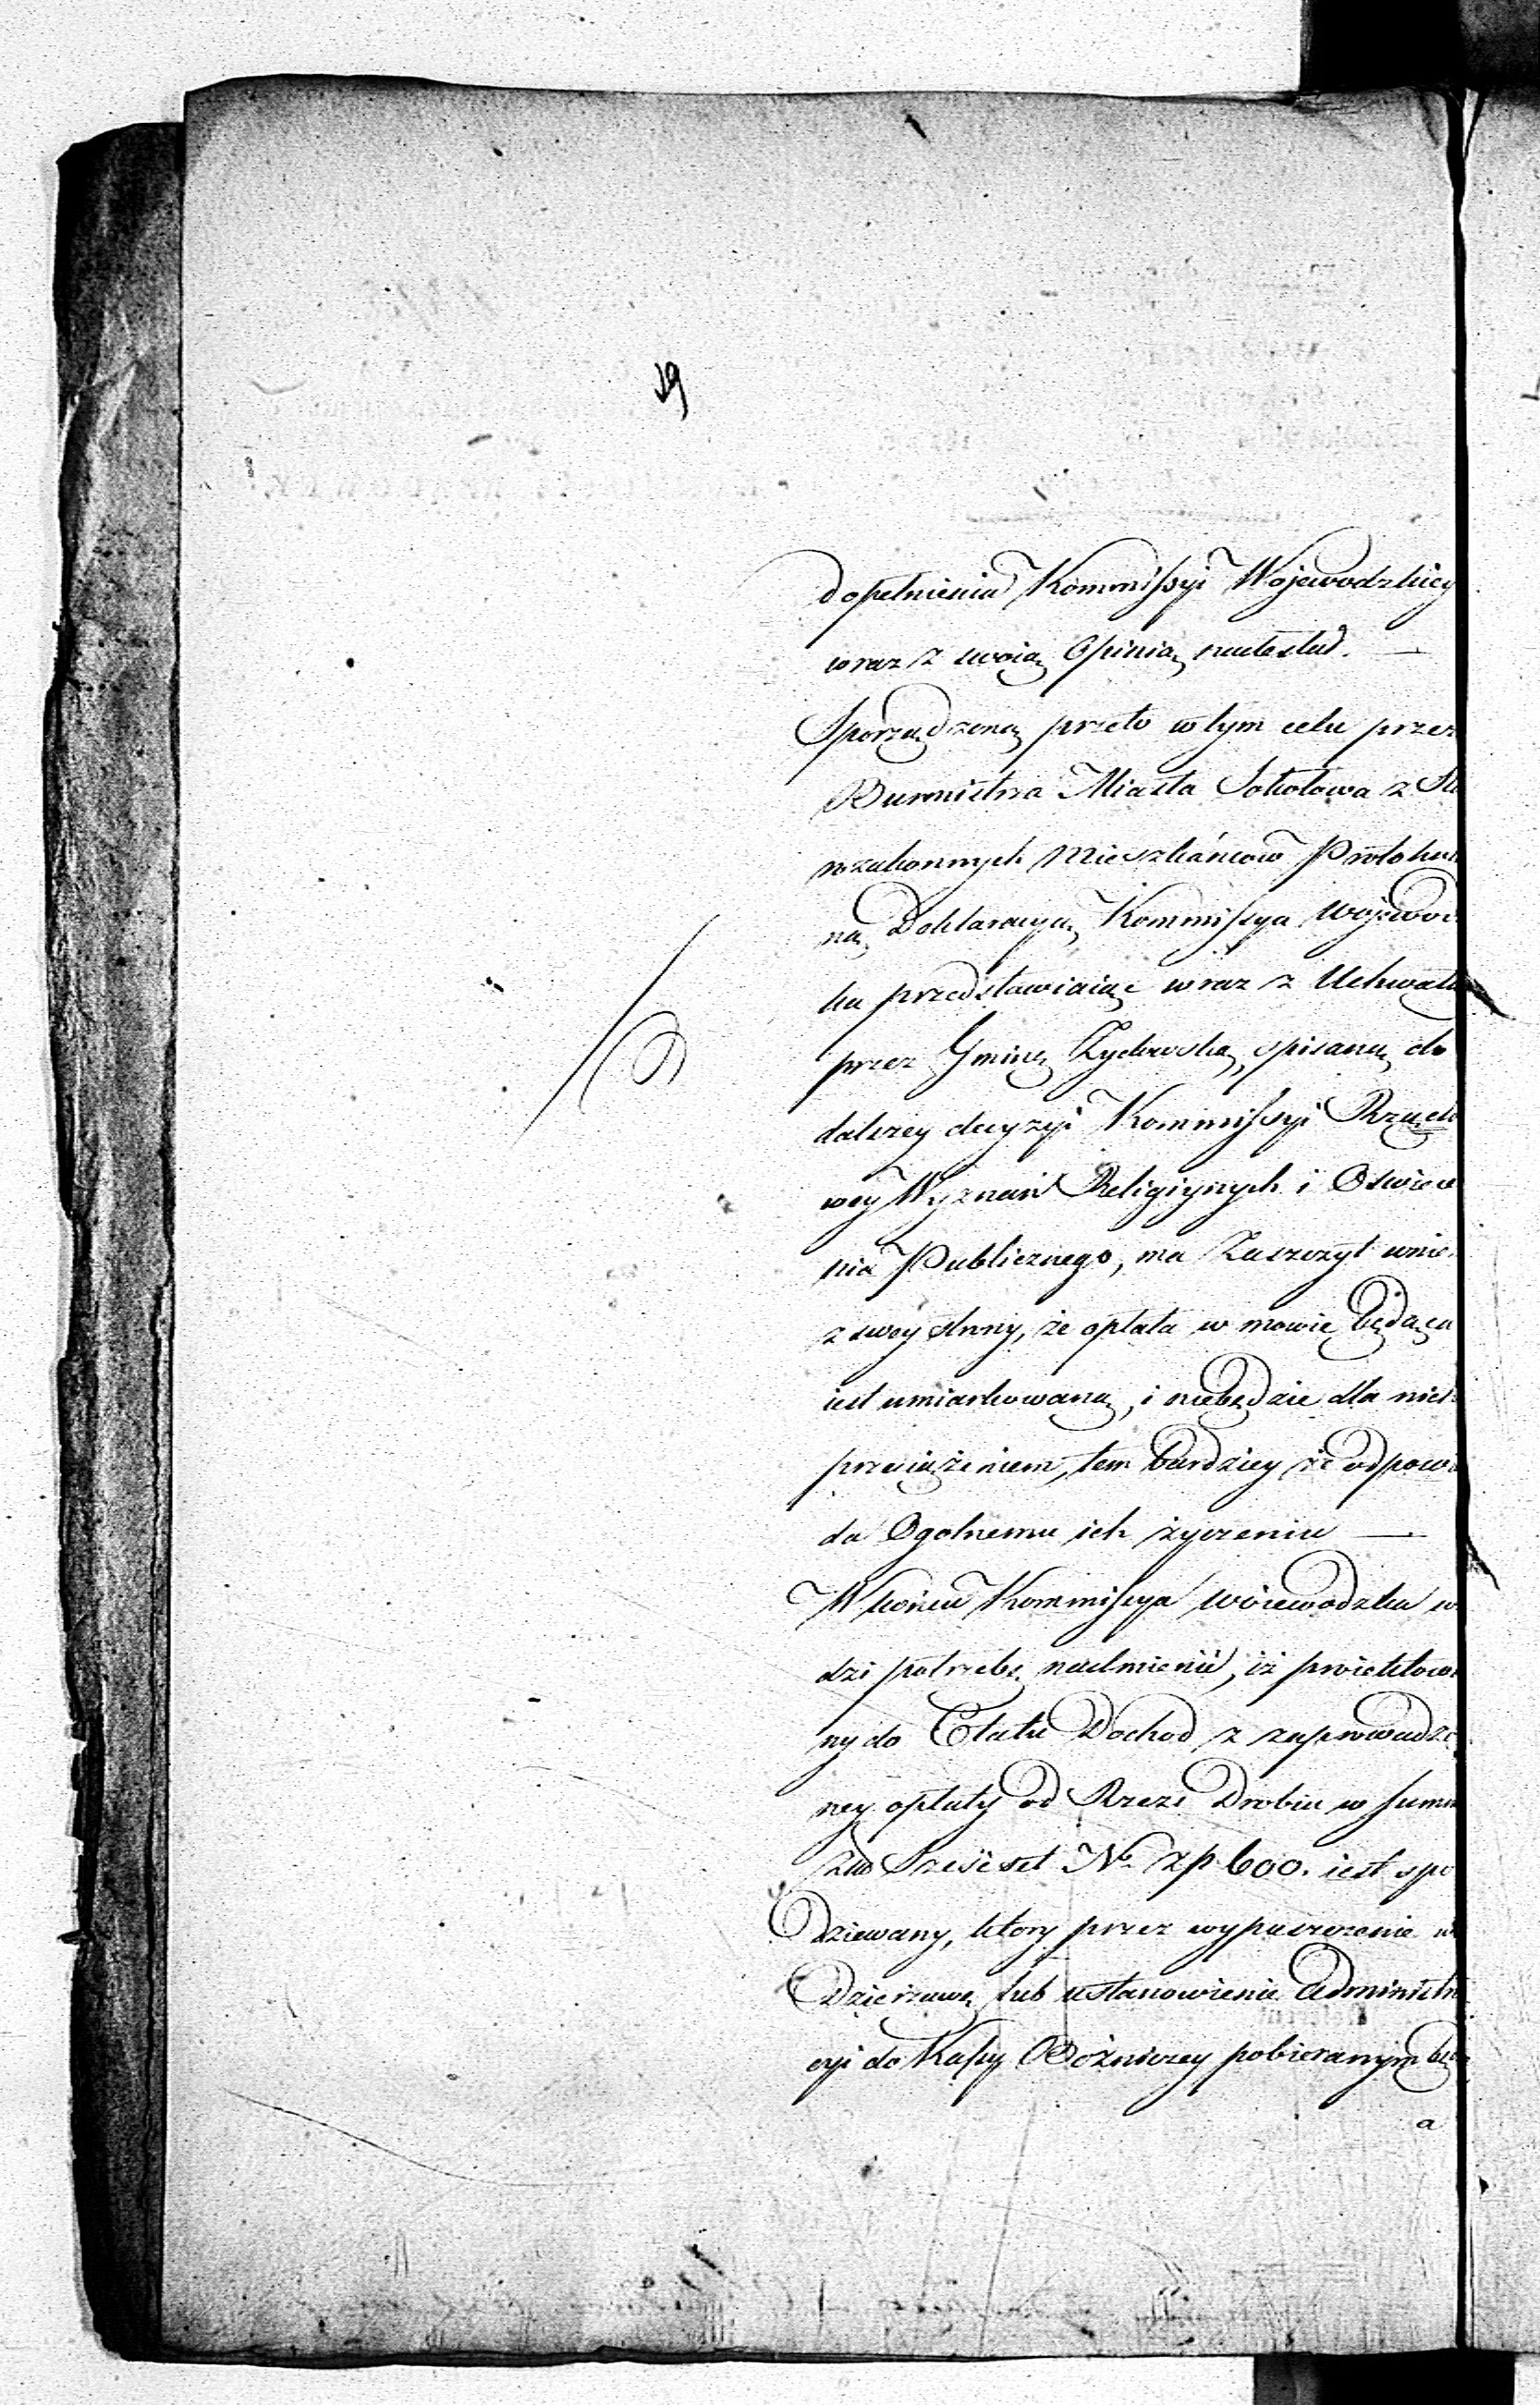 19
dopełnienia Kommissyi Wojewodzkiey
wraz z swoią Opinią nadesłał. —
Sporządzoną przeto w tym celu przez
Burmistrza Miasta Sokołowa z Sta
rozakonnych Mieszkańcow Protokul
ną Deklaracyą, Kommissya Wojewodz
ka przedstawiaiąc wraz z Uchwałą
przez Gminę Żydowską, spisaną do
dalszey decyzyi Kommissyi Rządo
wey Wyznań Religiynych i Oświece
nia Publicznego, ma Zaszczyt wnie
z swey strony, że opłata w mowie będąca
iest umiarkowaną, i niebędzie dla nich
przeciążeniem, tem bardziey że odpowia
da Ogolnemu ich życzeniu —
W końcu Kommissya Woiewodzka wi
dzi potrzebę nadmienić, iż proiektowa
ny do Etatu Dochod z zaprowadzo
ney opłaty od Rzezi Drobiu w summ
Złł Sześćset No zp 600. iest spo
dziewany, ktory przez wypuszczenie w
Dzierzawę lub ustanowienie Administra
cyi do Kassy Bożniczey pobieranym będz
a